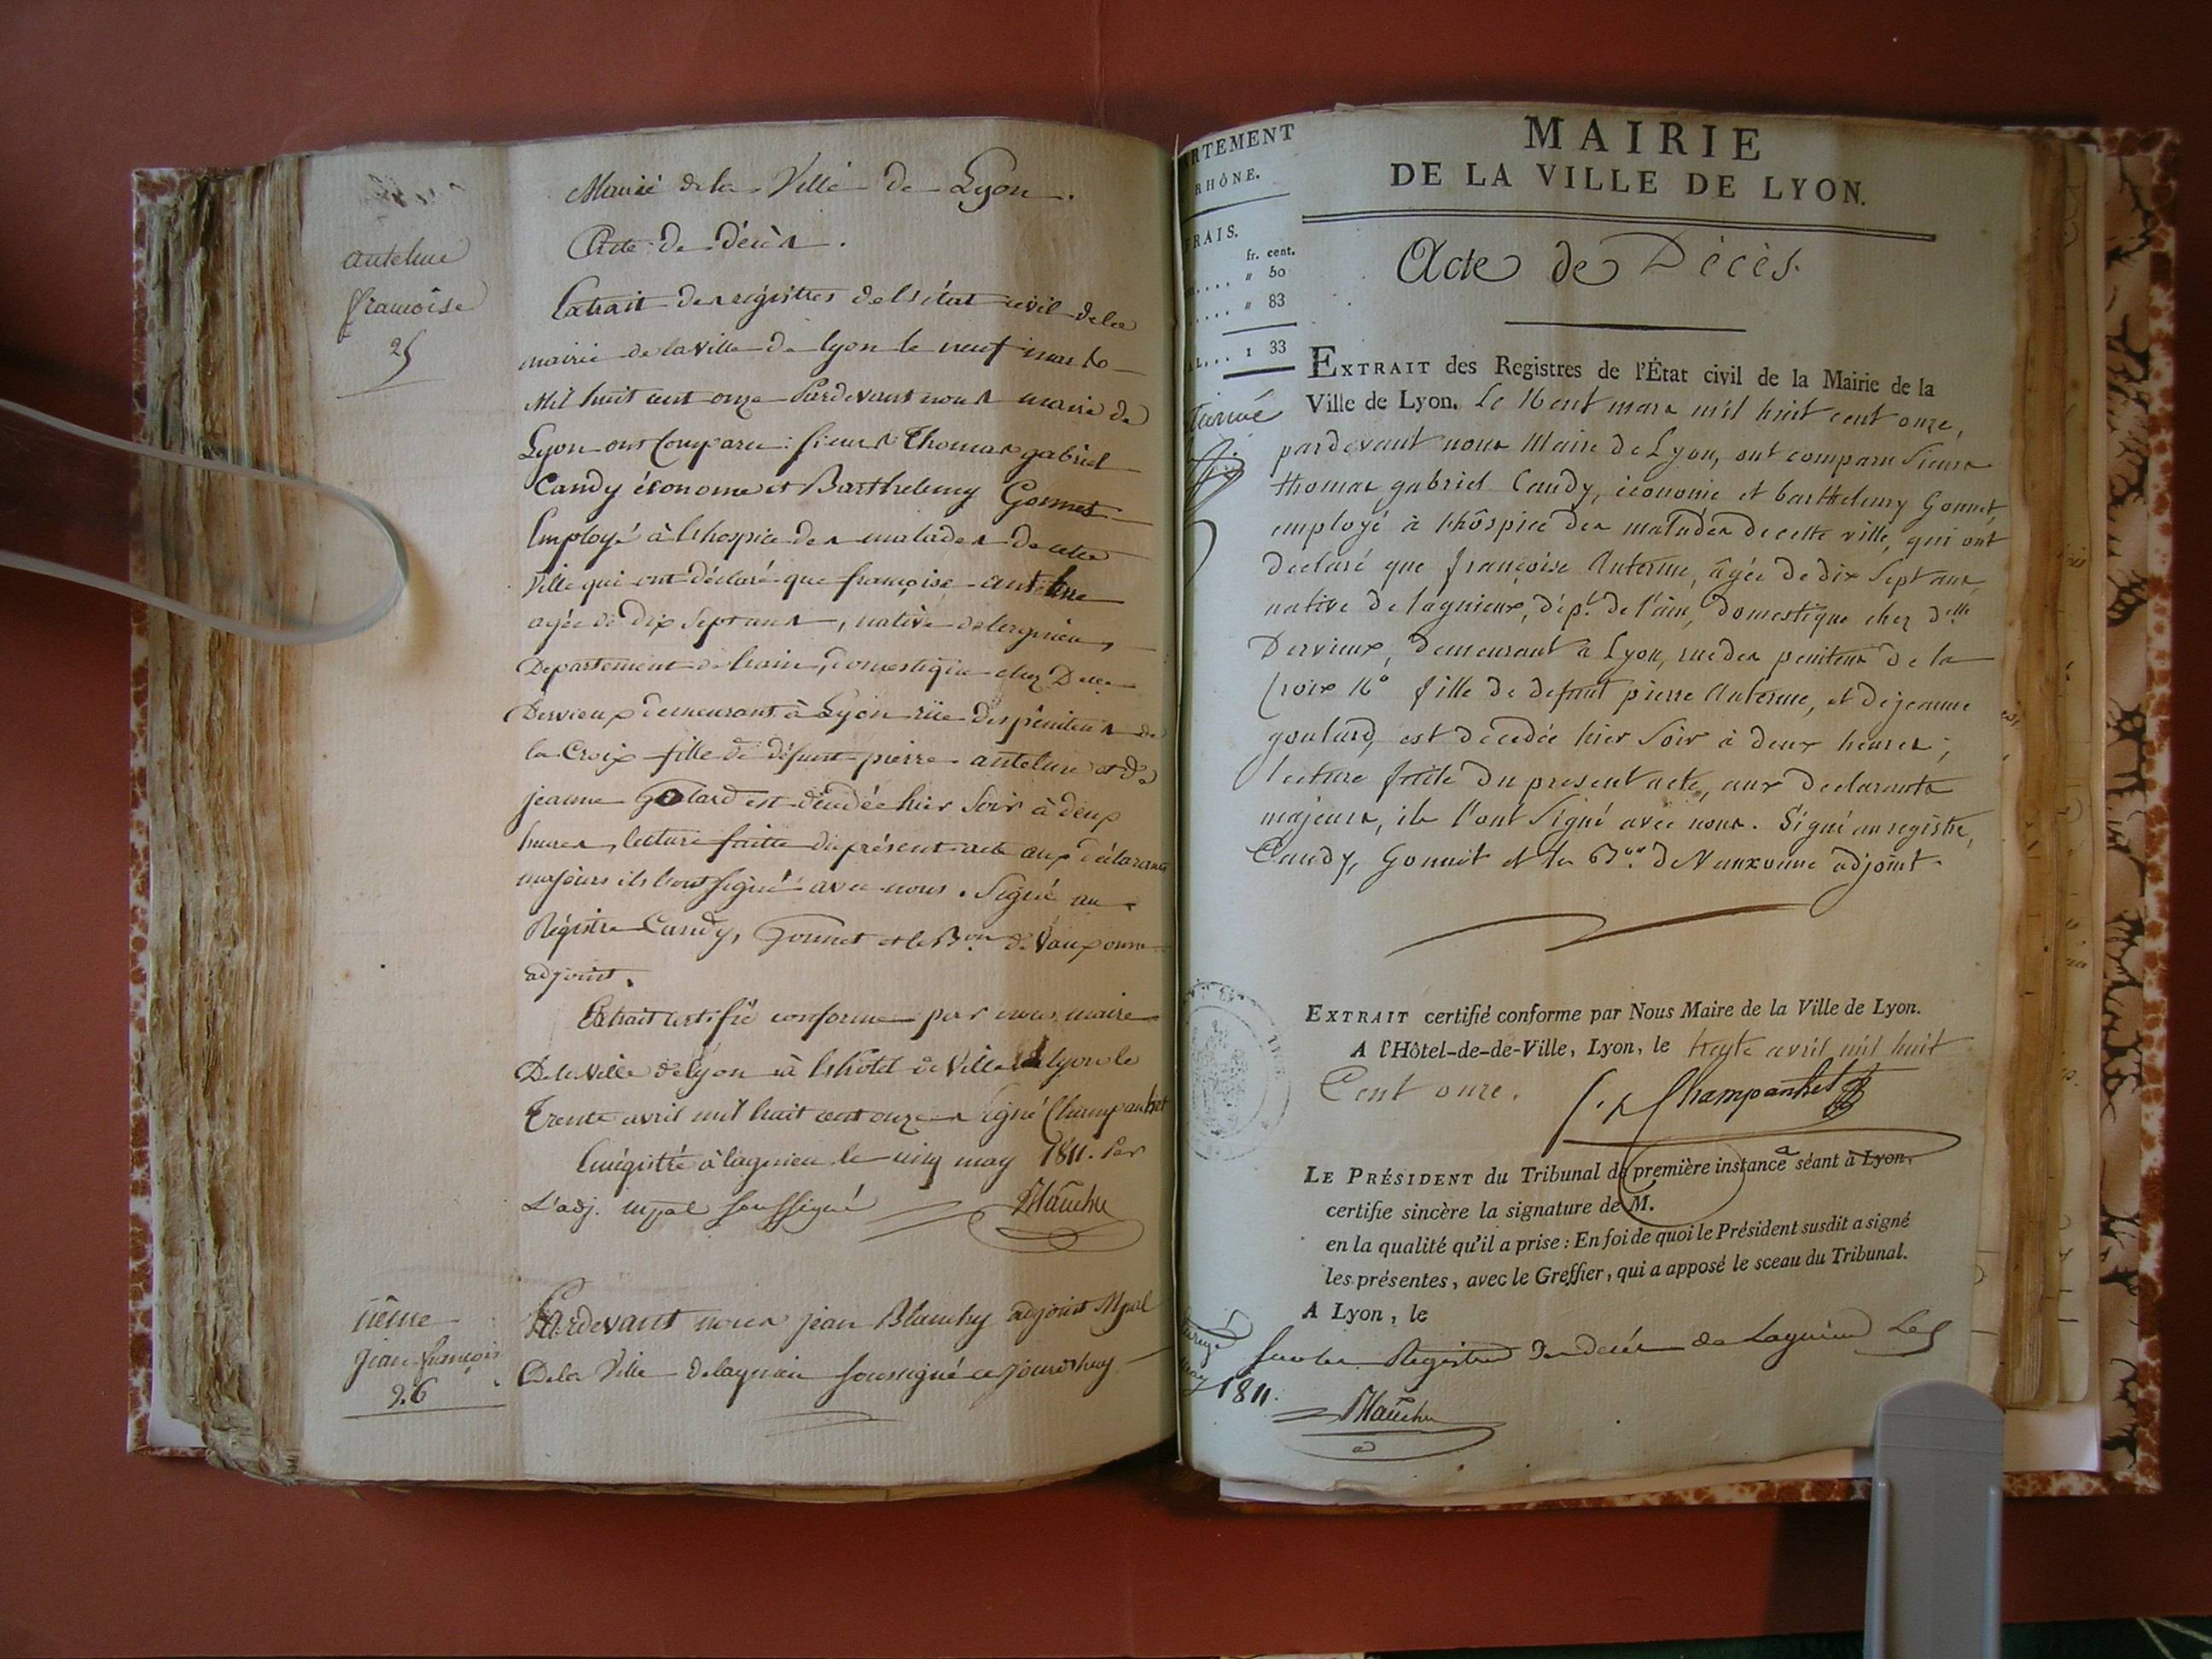 Mairie de la Ville de Lyon.
Acte de décès.
antelme
françoise
25
Extrait des registres de l'état civil de la
mairie de la ville de lyon le neuf mars
Mil huit cent onze Pardevant nous maire de
Lyon ont Comparu : sieurs Thomas gabriel
Candy économe et Barthelemy Gonnet
Employé à l'hospice des malades de cette
Ville qui ont déclaré que françoise antelme
agée de dix sept ans, native de lagnieu,
Département de l'ain, domestique chez Delle
Dervieux demeurant à Lyon rüe des pénitens de
la Croix fille de défunt pierre antelme et de
jeanne Golard est décédée hier soir à deux
heures, lecture faitte du présent acte aux déclarants
majeurs ils l'ont signé avec nous. Signé au
Régistre Candy, Gonnet et le Bon de Vauxonne
adjoint.
Extrait certifié conforme par nous maire
De la Ville de lyon à l'hôtel de Ville lyon le
Trente avril mil huit cent onze Signé Champanhet
Enrégistré à lagnieu le cinq may 1811. Par
L'adj. mpal soussigné Blanchy
jean françois
26
Pardevant nous jean Blanchy adjoint Mpal
De la Ville de lagnieu soussigné ce jourdhuy
RTEMENT
RHÔNE.
RAIS.
fr. cent.
" 50
" 83
L... 1 33
MAIRIE
DE LA VILLE DE LYON.
Acte de Décès.
EXTRAIT des Registres de l'État civil de la Mairie de la
Ville de Lyon. Le Neuf mars mil huit cent onze,
pardevant nous Maire de Lyon, ont comparu Sieurs
thomas gabriel Candy, économe et barthelemy Gonnet,
employé à l'hôspice des malades de cette ville, qui ont
declaré que françoise Antelme, âgée de dix Sept ans,
native de lagnieux, dép.t de l'ain, domestique chez d.elle
Dervieux, demeurant à Lyon, rue des penitens de la
Croix N° fille de defunt pierre Antelme, et de jeanne
goulard, est décedée hier Soir à deux heures;
lecture faite du present acte, aux declarants
majeurs, ils l'ont Signé avec nous. Signé au registre,
Candy, Gonnet et le B.on de Vauxonne adjoint.
EXTRAIT certifié conforme par Nous Maire de la Ville de Lyon.
A l'Hôtel-de-de-Ville, Lyon, le trente avril mil huit
Cent onze. Champanhet
LE PRÉSIDENT du Tribunal de première instance séant à Lyon,
certifie sincère la signature de M.
en la qualité qu'il a prise : En foi de quoi le Président susdit a signé
les présentes, avec le Greffier, qui a apposé le sceau du Tribunal.
A Lyon, le
sur les Registres des décès de Lagnieu Le 5
may 1811.
Blanchy